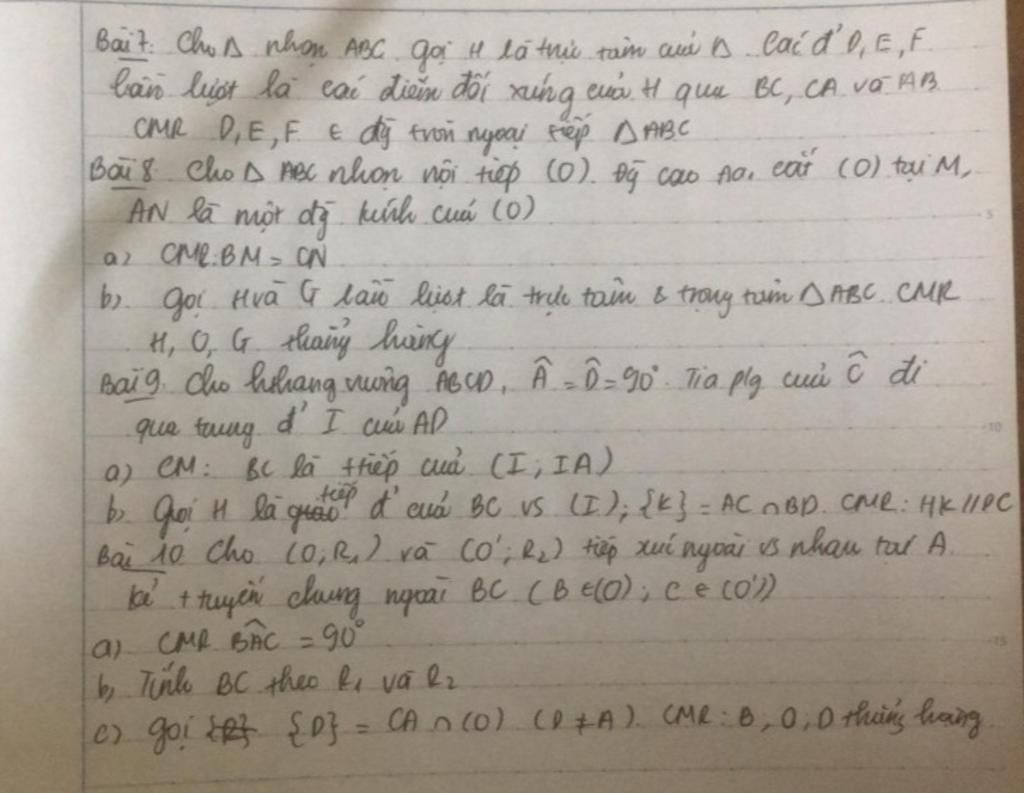 Bài 7. Cho Δ nhọn ABC gọi H là trực tâm của Δ. Các đ' D, E, F
lần lượt là các điểm đối xứng của H qua BC, CA và AB.
CMR D, E, F ∈ đg tròn ngoại tiếp ΔABC
Bài 8 Cho Δ ABC nhọn nội tiếp (O). Đg cao AA₁ cắt (O) tại M,
AN là một đg kính của (O)
a) CMR: BM = CN
b) Gọi H và G lần lượt là trực tâm & trọng tâm ΔABC. CMR
H, O, G thẳng hàng
Bài 9. Cho hthang vuông ABCD, Â = D̂ = 90°. Tia p/g của Ĉ đi
qua trung đ' I của AD
a) CM: BC là ttiếp của (I; IA)
b) Gọi H là tiếp đ' của BC vs (I); {K} = AC ∩ BD. CMR: HK // DC
Bài 10 Cho (O; R₁) và (O'; R₂) tiếp xúc ngoài vs nhau tại A.
kẻ t tuyến chung ngoài BC (B ∈ (O); C ∈ (O'))
a) CMR BÂC = 90°
b) Tính BC theo R₁ và R₂
c) gọi {D} = CA ∩ (O) (D ≠ A). CMR: B, O, D thẳng hàng
5
10
15